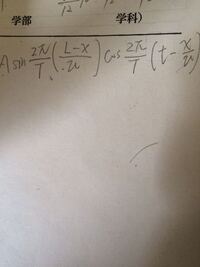 学部 学科)
A sin 2π/T (L-x/u) cos 2π/T (t - x/u)